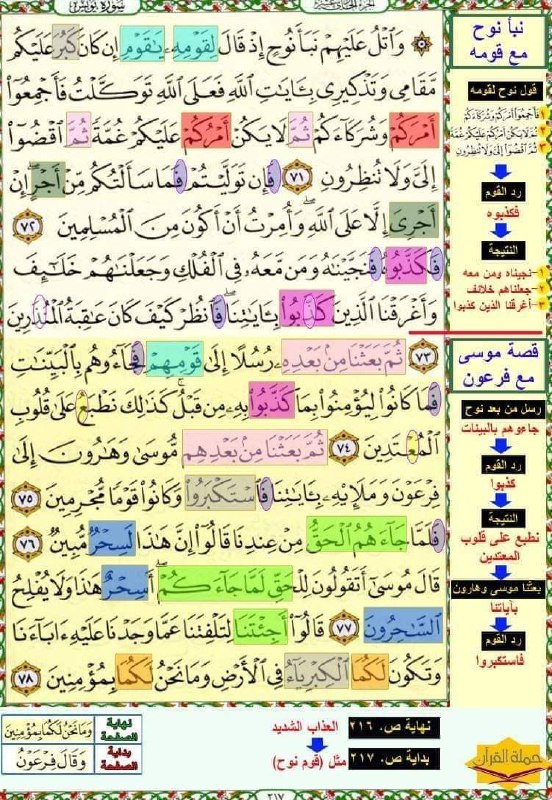 سورة يونس
الجزء الحادي عشر
۞ وَٱتْلُ عَلَيْهِمْ نَبَأَ نُوحٍ إِذْ قَالَ لِقَوْمِهِۦ يَٰقَوْمِ إِن كَانَ كَبُرَ عَلَيْكُم
مَّقَامِى وَتَذْكِيرِى بِـَٔايَٰتِ ٱللَّهِ فَعَلَى ٱللَّهِ تَوَكَّلْتُ فَأَجْمِعُوٓا۟
أَمْرَكُمْ وَشُرَكَآءَكُمْ ثُمَّ لَا يَكُنْ أَمْرُكُمْ عَلَيْكُمْ غُمَّةً ثُمَّ ٱقْضُوٓا۟
إِلَىَّ وَلَا تُنظِرُونِ ٧١ فَإِن تَوَلَّيْتُمْ فَمَا سَأَلْتُكُم مِّنْ أَجْرٍ إِنْ
أَجْرِىَ إِلَّا عَلَى ٱللَّهِ وَأُمِرْتُ أَنْ أَكُونَ مِنَ ٱلْمُسْلِمِينَ ٧٢
فَكَذَّبُوهُ فَنَجَّيْنَٰهُ وَمَن مَّعَهُۥ فِى ٱلْفُلْكِ وَجَعَلْنَٰهُمْ خَلَٰٓئِفَ
وَأَغْرَقْنَا ٱلَّذِينَ كَذَّبُوا۟ بِـَٔايَٰتِنَا فَٱنظُرْ كَيْفَ كَانَ عَٰقِبَةُ ٱلْمُنذَرِينَ
٧٣ ثُمَّ بَعَثْنَا مِنۢ بَعْدِهِۦ رُسُلًا إِلَىٰ قَوْمِهِمْ فَجَآءُوهُم بِٱلْبَيِّنَٰتِ
فَمَا كَانُوا۟ لِيُؤْمِنُوا۟ بِمَا كَذَّبُوا۟ بِهِۦ مِن قَبْلُ كَذَٰلِكَ نَطْبَعُ عَلَىٰ قُلُوبِ
ٱلْمُعْتَدِينَ ٧٤ ثُمَّ بَعَثْنَا مِنۢ بَعْدِهِم مُّوسَىٰ وَهَٰرُونَ إِلَىٰ
فِرْعَوْنَ وَمَلَإِي۟هِۦ بِـَٔايَٰتِنَا فَٱسْتَكْبَرُوا۟ وَكَانُوا۟ قَوْمًا مُّجْرِمِينَ ٧٥
فَلَمَّا جَآءَهُمُ ٱلْحَقُّ مِنْ عِندِنَا قَالُوٓا۟ إِنَّ هَٰذَا لَسِحْرٌ مُّبِينٌ ٧٦
قَالَ مُوسَىٰٓ أَتَقُولُونَ لِلْحَقِّ لَمَّا جَآءَكُمْ أَسِحْرٌ هَٰذَا وَلَا يُفْلِحُ
ٱلسَّٰحِرُونَ ٧٧ قَالُوٓا۟ أَجِئْتَنَا لِتَلْفِتَنَا عَمَّا وَجَدْنَا عَلَيْهِ ءَابَآءَنَا
وَتَكُونَ لَكُمَا ٱلْكِبْرِيَآءُ فِى ٱلْأَرْضِ وَمَا نَحْنُ لَكُمَا بِمُؤْمِنِينَ ٧٨
نبأ نوح
مع قومه
قول نوح لقومه
١ فَأَجْمِعُوٓا۟ أَمْرَكُمْ وَشُرَكَآءَكُمْ
٢ ثُمَّ لَا يَكُنْ أَمْرُكُمْ عَلَيْكُمْ غُمَّةً
٣ ثُمَّ ٱقْضُوٓا۟ إِلَىَّ وَلَا تُنظِرُونِ
رد القوم
فكذبوه
النتيجة
١-نجيناه ومن معه
٢- جعلناهم خلائف
٣- أغرقنا الذين كذبوا
قصة موسى
مع فرعون
رسل من بعد نوح
جاءوهم بالبينات
رد القوم
كذبوا
النتيجة
نطبع على قلوب
المعتدين
بعثنا موسى وهارون
بآياتنا
رد القوم
فاستكبروا
نهاية الصفحة
وَمَا نَحْنُ لَكُمَا بِمُؤْمِنِينَ
بداية الصفحة
وَقَالَ فِرْعَوْنُ
نهاية ص. ٢١٦
العذاب الشديد
بداية ص. ٢١٧
مثل (قوم نوح)
حملة القرآن
٢١٧